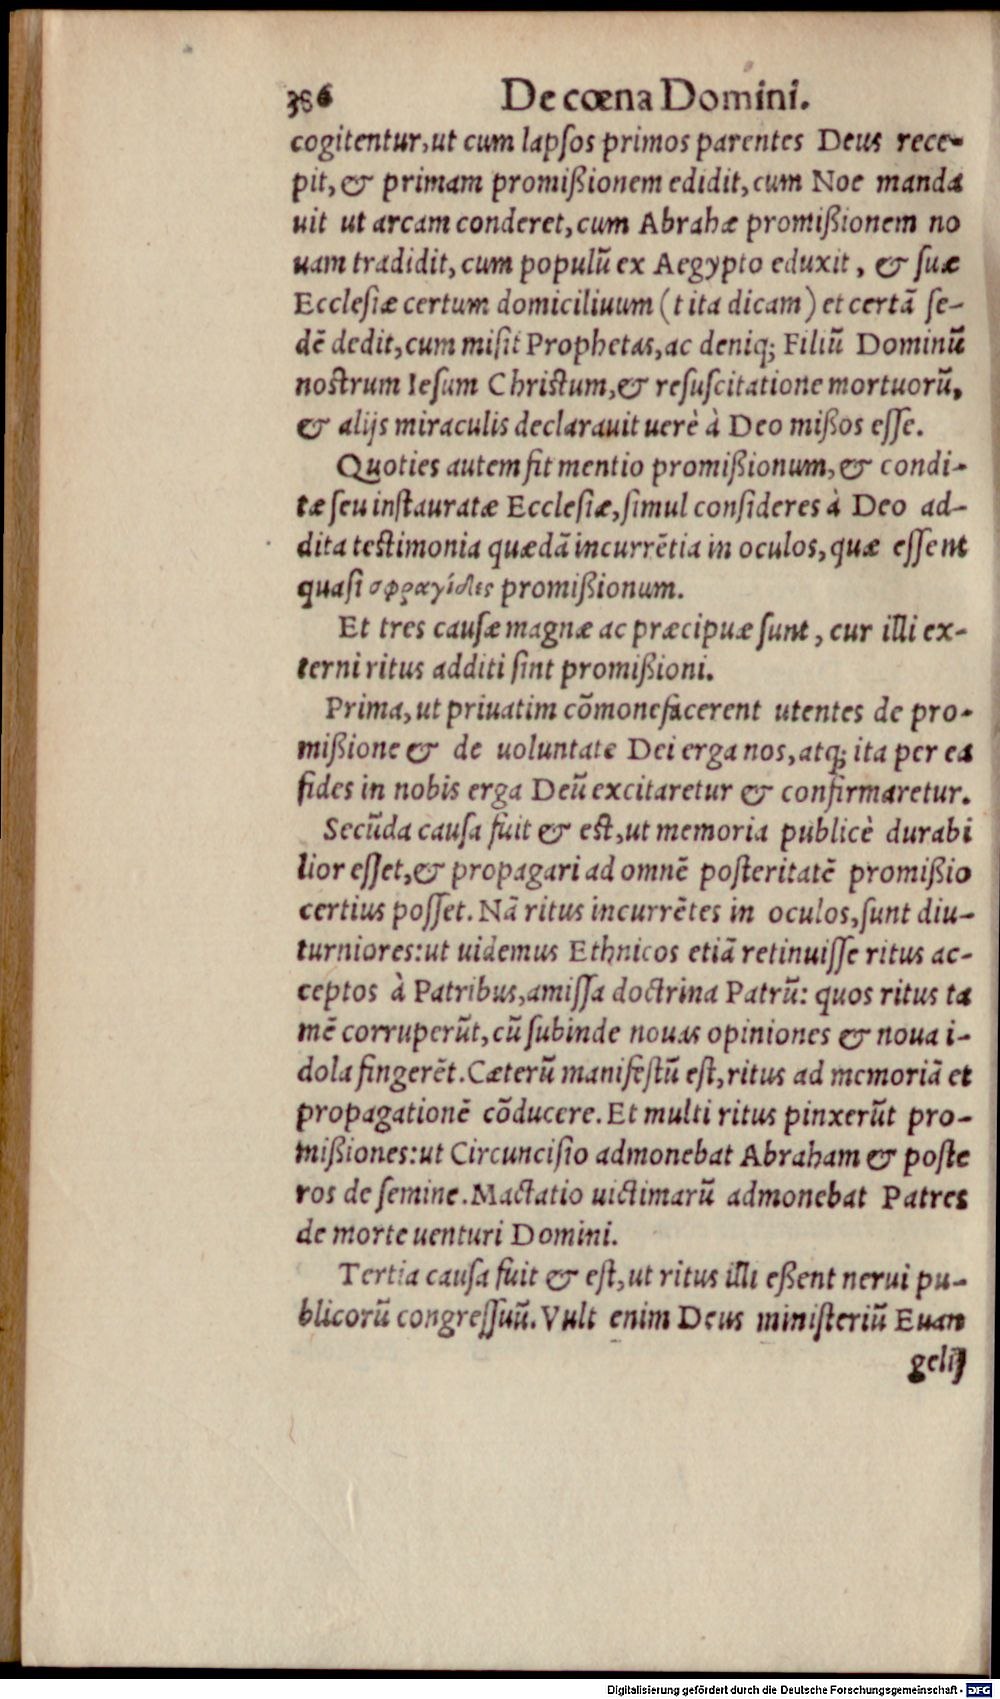 386 De cœna Domini.
cogitentur, ut cum lapſos primos parentes Deus rece-
pit, & primam promißionem edidit, cum Noe manda
uit ut arcam conderet, cum Abrahæ promißionem no
uam tradidit, cum populũ ex Aegypto eduxit, & ſuæ
Eccleſiæ certum domiciliuum (t ita dicam) et certã ſe-
dẽ dedit, cum miſit Prophetas, ac deniq; Filiũ Dominũ
noſtrum Ieſum Chriſtum, & reſuſcitatione mortuorũ,
& alijs miraculis declarauit uerè à Deo mißos eſſe.
Quoties autem fit mentio promißionum, & condi-
tæ ſeu inſtauratæ Eccleſiæ, ſimul conſideres à Deo ad-
dita teſtimonia quædã incurrẽtia in oculos, quæ eſſent
quaſi σφραγίδες promißionum.
Et tres cauſæ magnæ ac præcipuæ ſunt, cur illi ex-
terni ritus additi ſint promißioni.
Prima, ut priuatim cõmonefacerent utentes de pro-
mißione & de uoluntate Dei erga nos, atq; ita per ea
fides in nobis erga Deũ excitaretur & confirmaretur.
Secũda cauſa fuit & eſt, ut memoria publicè durabi
lior eſſet, & propagari ad omnẽ poſteritatẽ promißio
certius poſſet. Nã ritus incurrẽtes in oculos, ſunt diu-
turniores: ut uidemus Ethnicos etiã retinuiſſe ritus ac-
ceptos à Patribus, amiſſa doctrina Patrũ: quos ritus ta
mẽ corruperũt, cũ ſubinde nouas opiniones & noua i-
dola fingerẽt. Cæterũ manifeſtũ eſt, ritus ad memoriã et
propagationẽ cõducere. Et multi ritus pinxerũt pro-
mißiones: ut Circunciſio admonebat Abraham & poſte
ros de ſemine. Mactatio uictimarũ admonebat Patres
de morte uenturi Domini.
Tertia cauſa fuit & eſt, ut ritus illi eßent nerui pu-
blicorũ congreſſuũ. Vult enim Deus miniſteriũ Euan
gelij
Digitalisierung gefördert durch die Deutsche Forschungsgemeinschaft - DFG